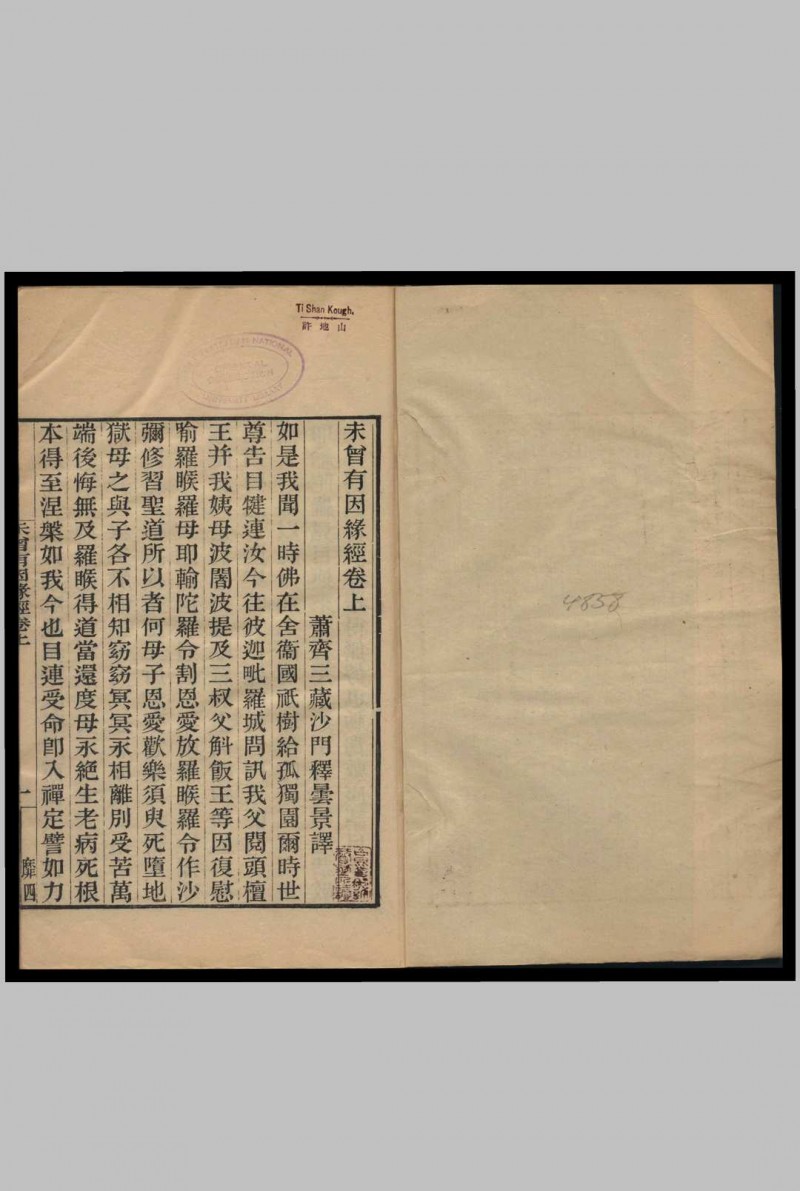 Ti Shan Kough.
許地山
未曾有因緣經卷上
蕭齊三藏沙門釋曇景譯
如是我聞一時佛在舍衞國祇樹給孤獨園爾時世
尊告目犍連汝今往彼迦毗羅城問訊我父閱頭檀
王并我姨母波闍波提及三叔父斛飯王等因復慰
喻羅睺羅母耶輸陀羅令割恩愛放羅睺羅令作沙
彌修習聖道所以者何母子恩愛歡樂須臾死墮地
獄母之與子各不相知窈窈冥冥永相離別受苦萬
端後悔無及羅睺得道當還度母永絕生老病死根
本得至涅槃如我今也目連受命卽入禪定譬如力
未曾有因緣經卷上
一
靡四
4858